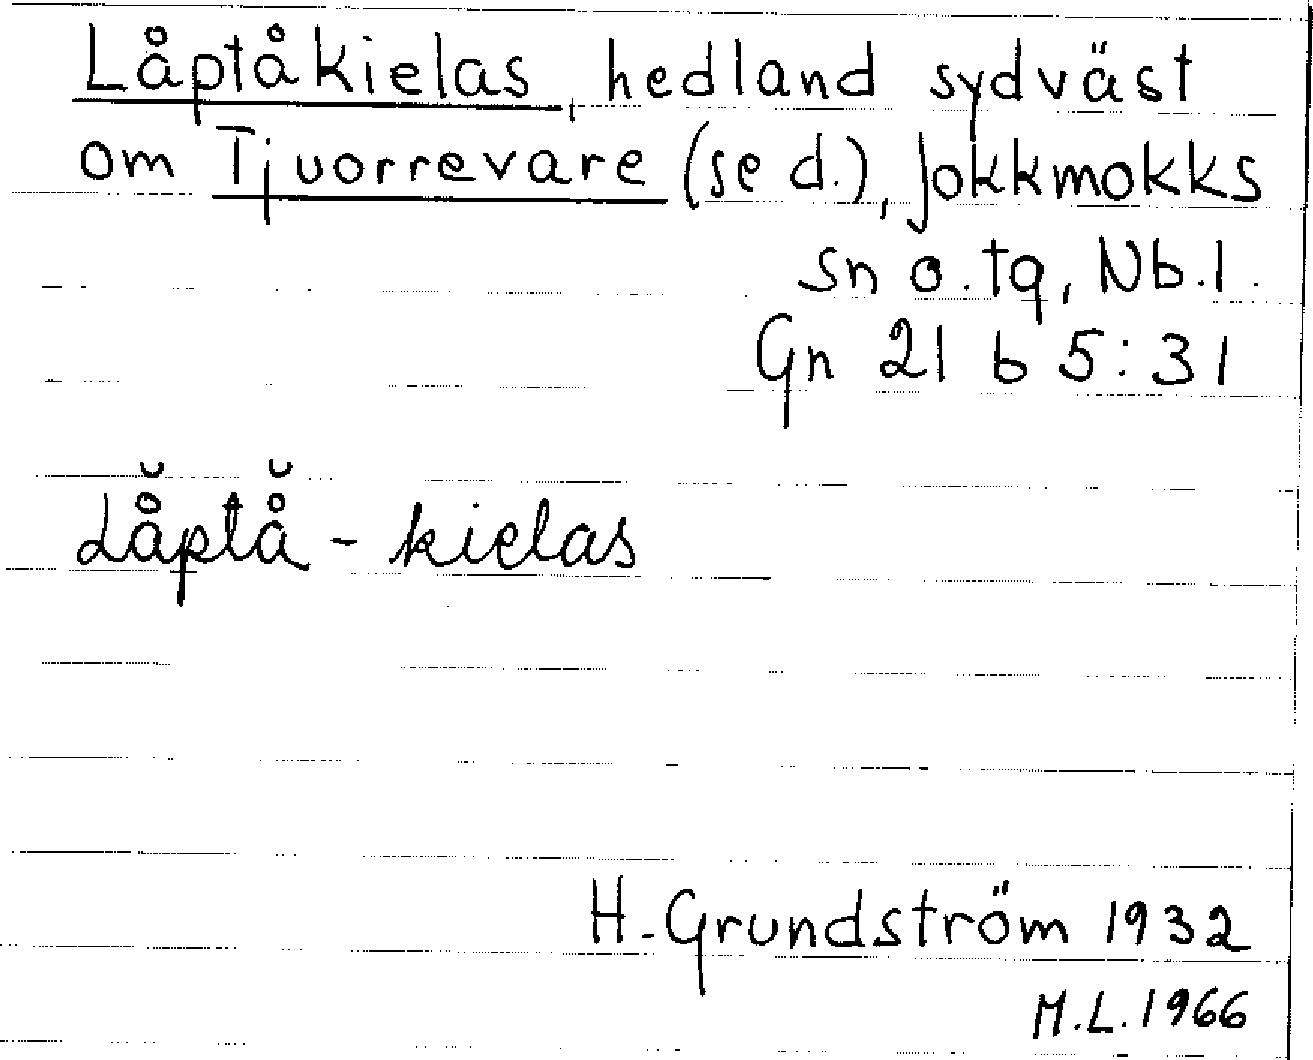 Låptåkielas, hedland sydväst
om Tjuorrevare (se d.), Jokkmokks
sn o. tg, Nb.l.
Gn 21 b 5:31
Lå̆ptå̆ - kielas
H. Grundström 1932
M.L. 1966